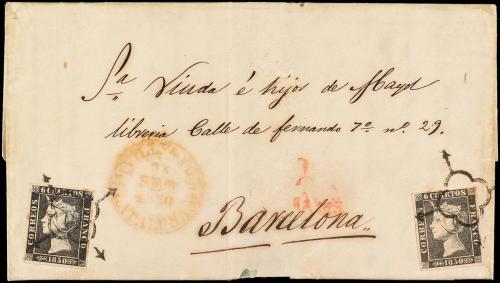 Sa Viuda é hijos de Mayol
libreria Calle de fernando 7º nº 29.
Barcelona
6 CUARTOS
CORREOS
FRANCO
1850
6 CUARTOS
CORREOS
FRANCO
1850